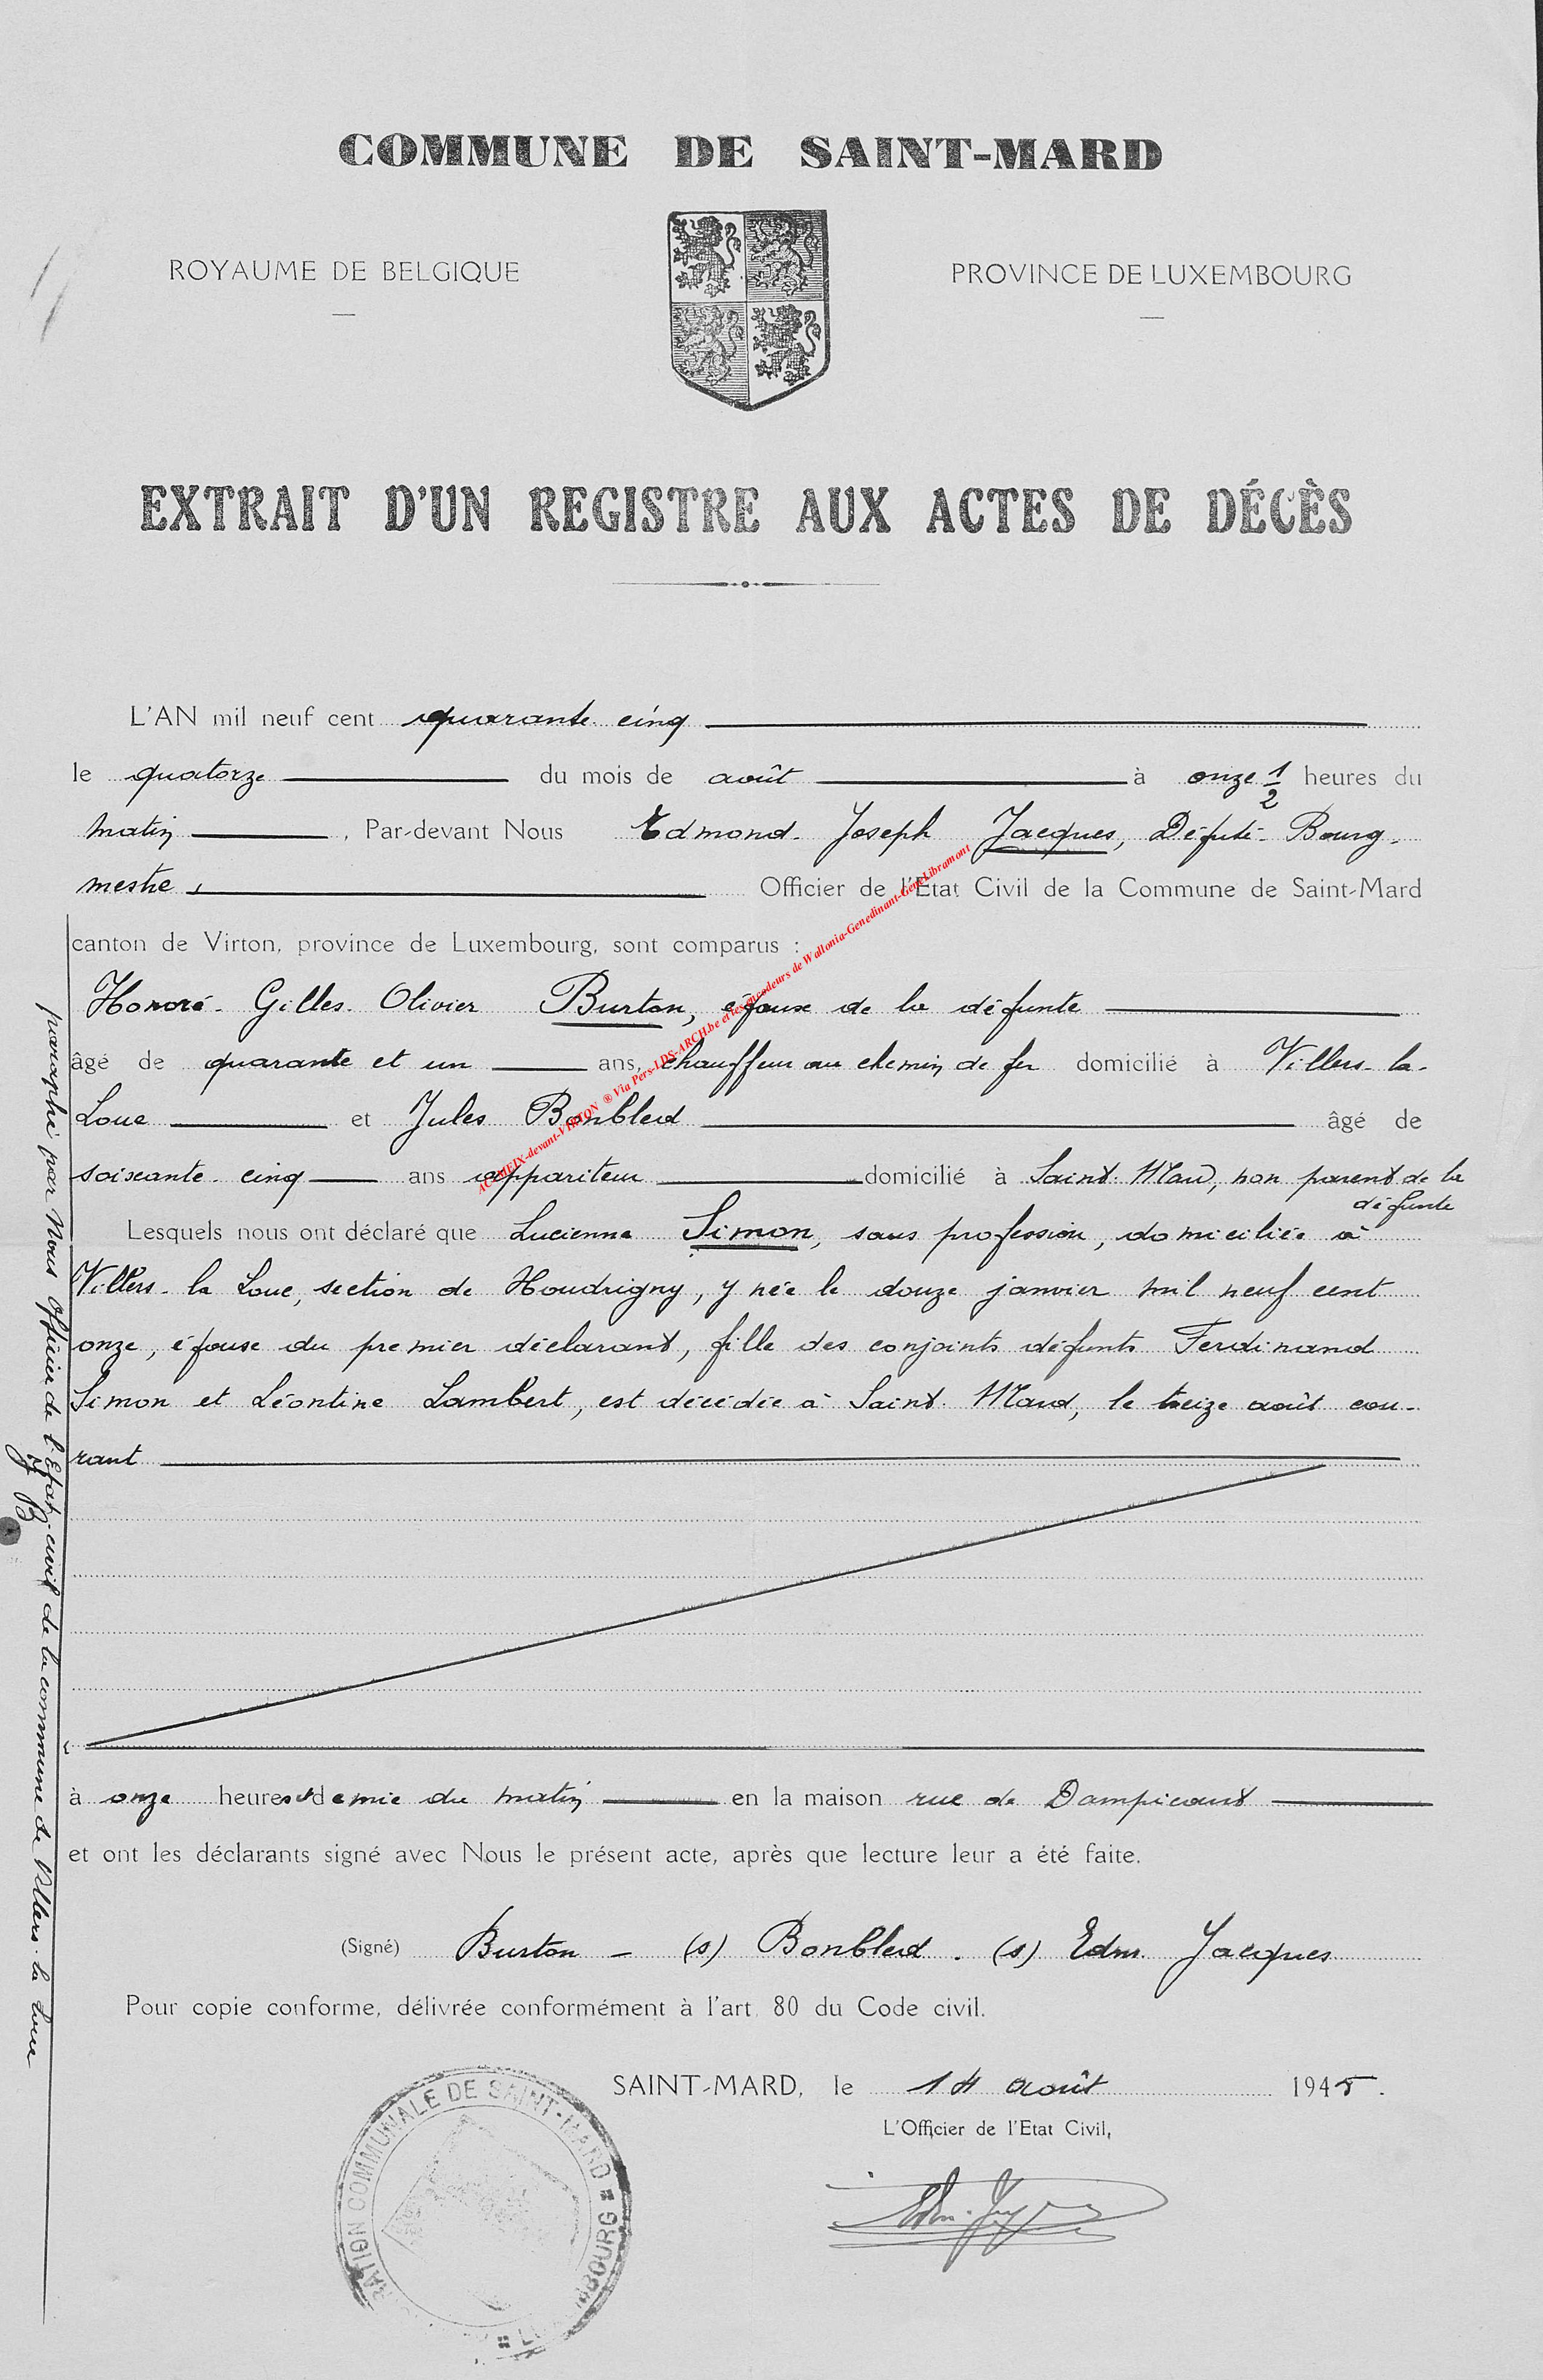 COMMUNE DE SAINT-MARD
ROYAUME DE BELGIQUE
PROVINCE DE LUXEMBOURG
EXTRAIT D'UN REGISTRE AUX ACTES DE DÉCÈS
L'AN mil neuf cent quarante cinq
le quatorze du mois de août à onze 1/2 heures du
matin, Par-devant Nous Edmond Joseph Jacques, Député-Bourg-
mestre, Officier de l'Etat Civil de la Commune de Saint-Mard
canton de Virton, province de Luxembourg, sont comparus :
Honoré Gilles Olivier Burton, époux de la défunte
âgé de quarante et un ans, chauffeur au chemin de fer domicilié à Villers-la-
Loue et Jules Bonbled âgé de
soixante-cinq ans appariteur domicilié à Saint-Mard, non parent de la
défunte
Lesquels nous ont déclaré que Lucienne Simon, sans profession, domiciliée à
Villers-la Loue, section de Houdrigny, y née le douze janvier mil neuf cent
onze, épouse du premier déclarant, fille des conjoints défunts Ferdinand
Simon et Léontine Lambert, est décédée à Saint-Mard, le treize août cou-
rant
à onze heures et demie du matin en la maison rue de Dampicourt
et ont les déclarants signé avec Nous le présent acte, après que lecture leur a été faite.
(Signé) Burton - (s) Bonbled. (s) Edm. Jacques
Pour copie conforme, délivrée conformément à l'art. 80 du Code civil.
SAINT-MARD, le 14 août 1945.
L'Officier de l'Etat Civil,
paraphé par Nous Officier de l'Etat-civil de la commune de Villers-la Loue
RATION COMMUNALE DE SAINT-MARD
AC-MEIX-devant-VIRTON ® Via Pers-LDS-ARCH.be et les encodeurs de Wallonia-Genedinant-GeneLibramont